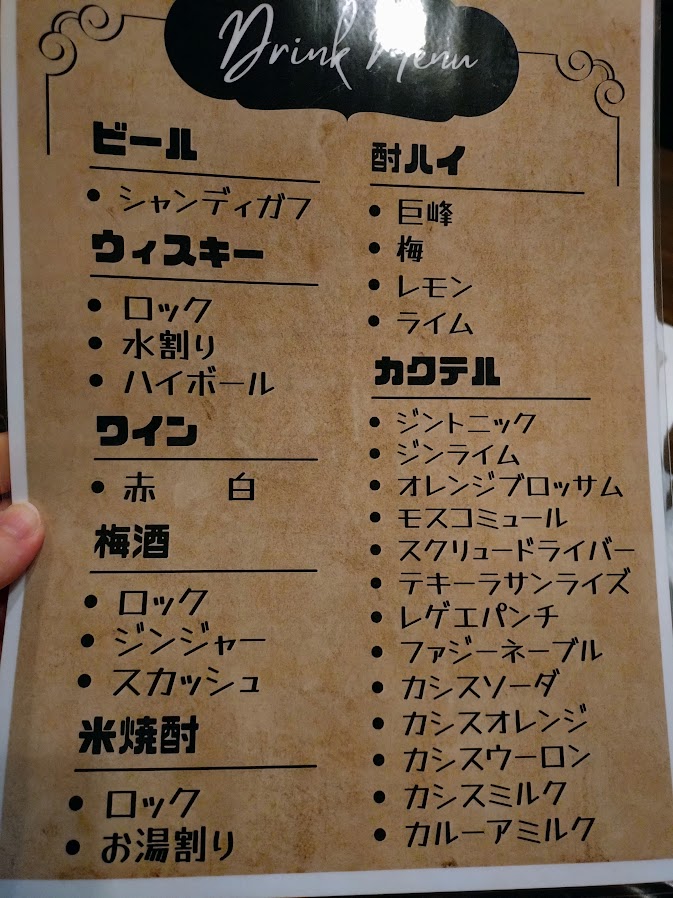 Drink Menu
ビール
• シャンディガフ
ウィスキー
• ロック
• 水割り
• ハイボール
ワイン
• 赤　白
梅酒
• ロック
• ジンジャー
• スカッシュ
米焼酎
• ロック
• お湯割り
酎ハイ
• 巨峰
• 梅
• レモン
• ライム
カクテル
• ジントニック
• ジンライム
• オレンジブロッサム
• モスコミュール
• スクリュードライバー
• テキーラサンライズ
• レゲエパンチ
• ファジーネーブル
• カシスソーダ
• カシスオレンジ
• カシスウーロン
• カシスミルク
• カルーアミルク